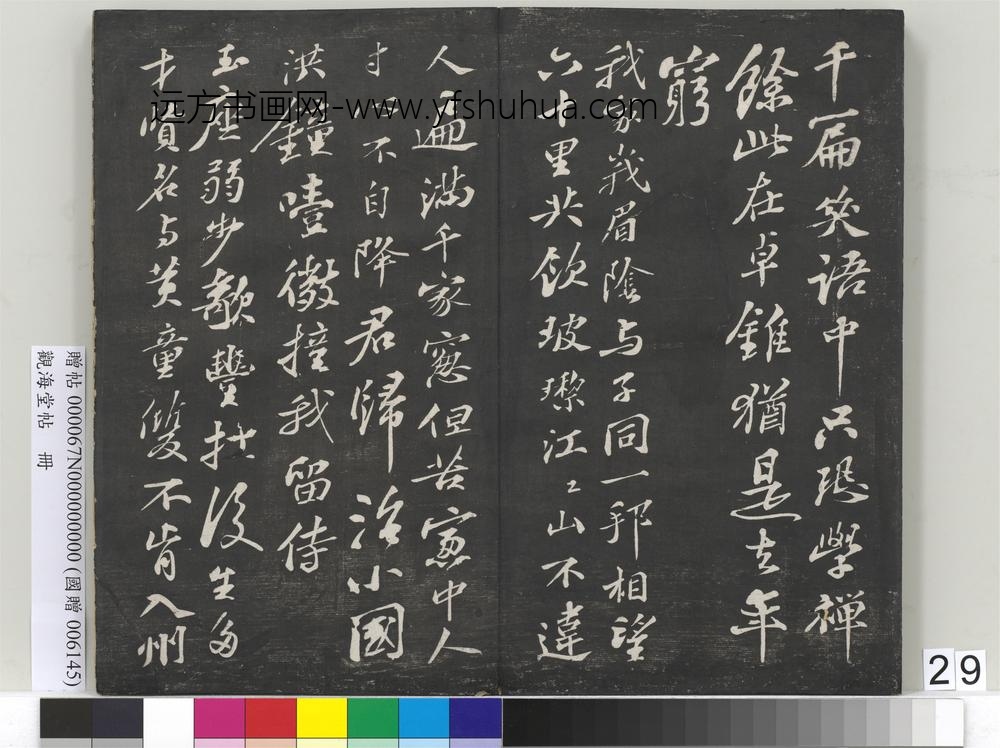 千篇笑語中只恐學禪
餘此在卓錐猶是去年
窮
我家峩眉陰与子同一邦相望
六十里共飲玻瓈江〻山不違
人遍滿千家窓但苦窓中人
寸心不自降君歸治小國
洪鐘噎微撞我留侍
玉座弱步欹豐扛後生多
才賢名与黃童雙不肯入州
远方书画网-www.yfshuhua.com
贈帖 000067N000000000 (國贈 006145)
觀海堂帖 冊
29